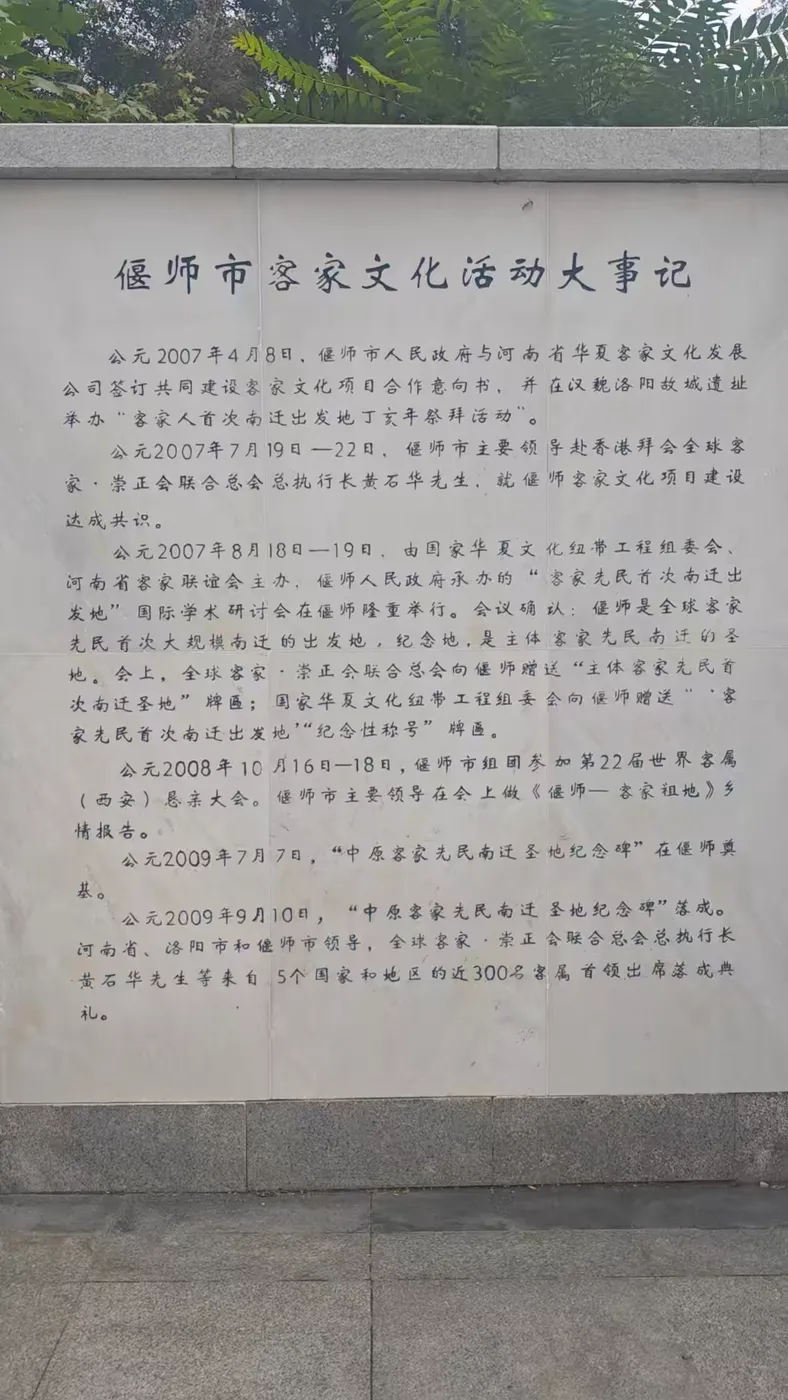 偃师市客家文化活动大事记
公元2007年4月8日，偃师市人民政府与河南省华夏客家文化发展
公司签订共同建设客家文化项目合作意向书，并在汉魏洛阳故城遗址
举办“客家人首次南迁出发地丁亥年祭拜活动”。
公元2007年7月19日—22日，偃师市主要领导赴香港拜会全球客
家·崇正会联合总会总执行长黄石华先生，就偃师客家文化项目建设
达成共识。
公元2007年8月18日—19日，由国家华夏文化纽带工程组委会、
河南省客家联谊会主办，偃师人民政府承办的“客家先民首次南迁出
发地”国际学术研讨会在偃师隆重举行。会议确认：偃师是全球客家
先民首次大规模南迁的出发地，纪念地，是主体客家先民南迁的圣
地。会上，全球客家·崇正会联合总会向偃师赠送“主体客家先民首
次南迁圣地”牌匾；国家华夏文化纽带工程组委会向偃师赠送“‘客
家先民首次南迁出发地’“纪念性称号”牌匾。
公元2008年10月16日—18日，偃师市组团参加第22届世界客属
（西安）恳亲大会。偃师市主要领导在会上做《偃师—客家祖地》乡
情报告。
公元2009年7月7日，“中原客家先民南迁圣地纪念碑”在偃师奠
基。
公元2009年9月10日，“中原客家先民南迁圣地纪念碑”落成。
河南省、洛阳市和偃师市领导，全球客家·崇正会联合总会总执行长
黄石华先生等来自5个国家和地区的近300名客属首领出席落成典
礼。